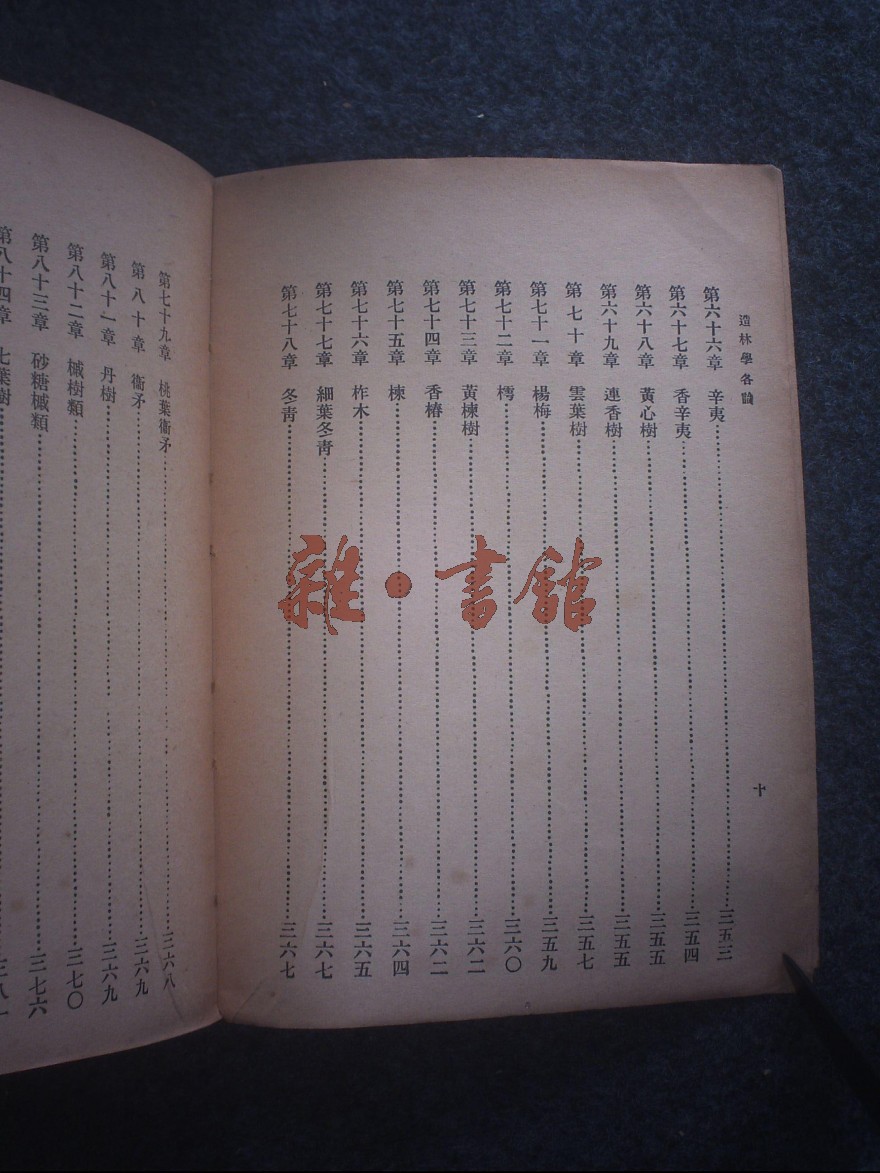 造林學各論
第六十六章 辛夷……三五三
第六十七章 香辛夷……三五四
第六十八章 黃心樹……三五五
第六十九章 連香樹……三五五
第七十章 雲葉樹……三五七
第七十一章 楊梅……三五九
第七十二章 樗……三六〇
第七十三章 黃楝樹……三六二
第七十四章 香椿……三六二
第七十五章 楝……三六四
第七十六章 柞木……三六五
第七十七章 細葉冬青……三六七
第七十八章 冬青……三六七
十
第七十九章 桃葉衞矛……三六八
第八十章 衞矛……三六九
第八十一章 丹樹……三六九
第八十二章 槭樹類……三七〇
第八十三章 砂糖槭類……三七六
第八十四章 七葉樹……三八一
雜·書館